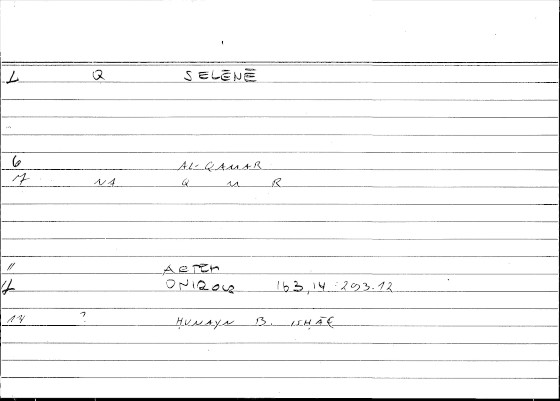 1 Q SELĒNĒ
6 AL-QAMAR
7 NA Q M R
11 ARTEM
12 ONIROC 163,14 : 293.12
14 ? ḤUNAYN B. ISḤĀQ